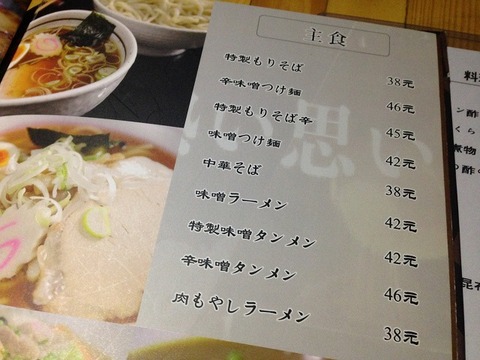 主食
特製もりそば 38元
辛味噌つけ麺 46元
特製もりそば辛 45元
味噌つけ麺 42元
中華そば 38元
味噌ラーメン 42元
特製味噌タンメン 42元
辛味噌タンメン 46元
肉もやしラーメン 38元
思い
料
ン酢
くら
煮物
つ酢の
昆布